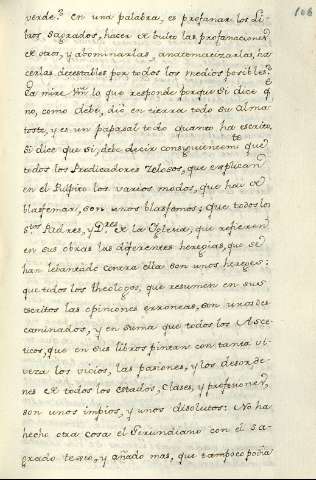 106
verde? en una palabra, es profanar los Li-
bros Sagrados, hacer de bulto las profanaciones
de otros, y abominarlas, anatematizarlas, ha-
cerlas detestables por todos los medios posibles?
La mire Vm lo que responde porque si dice q
no, como debe, dió en tierra todo su Alma-
toste, y es un papasal todo quanto ha escrito,
Si dice que si, debe decir consiguientemte que
todos los Predicadores zelosos, que explican
en el Pulpito los varios modos, que hai de
blasfemar, son unos blasfemos; que todos los
Stos Padres, y Dres de la Iglesia, que refieren
en sus obras las diferentes heregias, que se
han lebantado contra ella son unos hereges:
que todos los theologos, que resumen en sus
escritos las opiniones erroneas, son unos des-
caminados, y en suma que todos los Asce-
ticos, que en sus libros pintan con tanta vi-
veza los vicios, las pasiones, y los desorde-
nes de todos los estados, clases, y profesiones,
son unos impios, y unos disolutos: No ha
hecho otra cosa el Gerundiano con el Sa-
grado texto, y añado mas, que tampoco podia